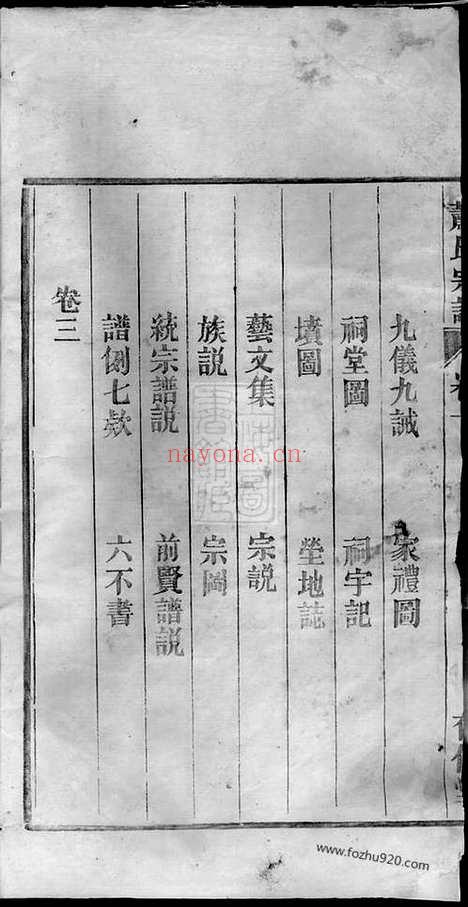 九儀九誡 家禮圖
祠堂圖 祠宇記
墳圖 塋地誌
藝文集 宗說
族說 宗圖
統宗譜說 前賢譜說
譜例七欵 六不書
卷三
nayona.cn
www.fozhu920.com